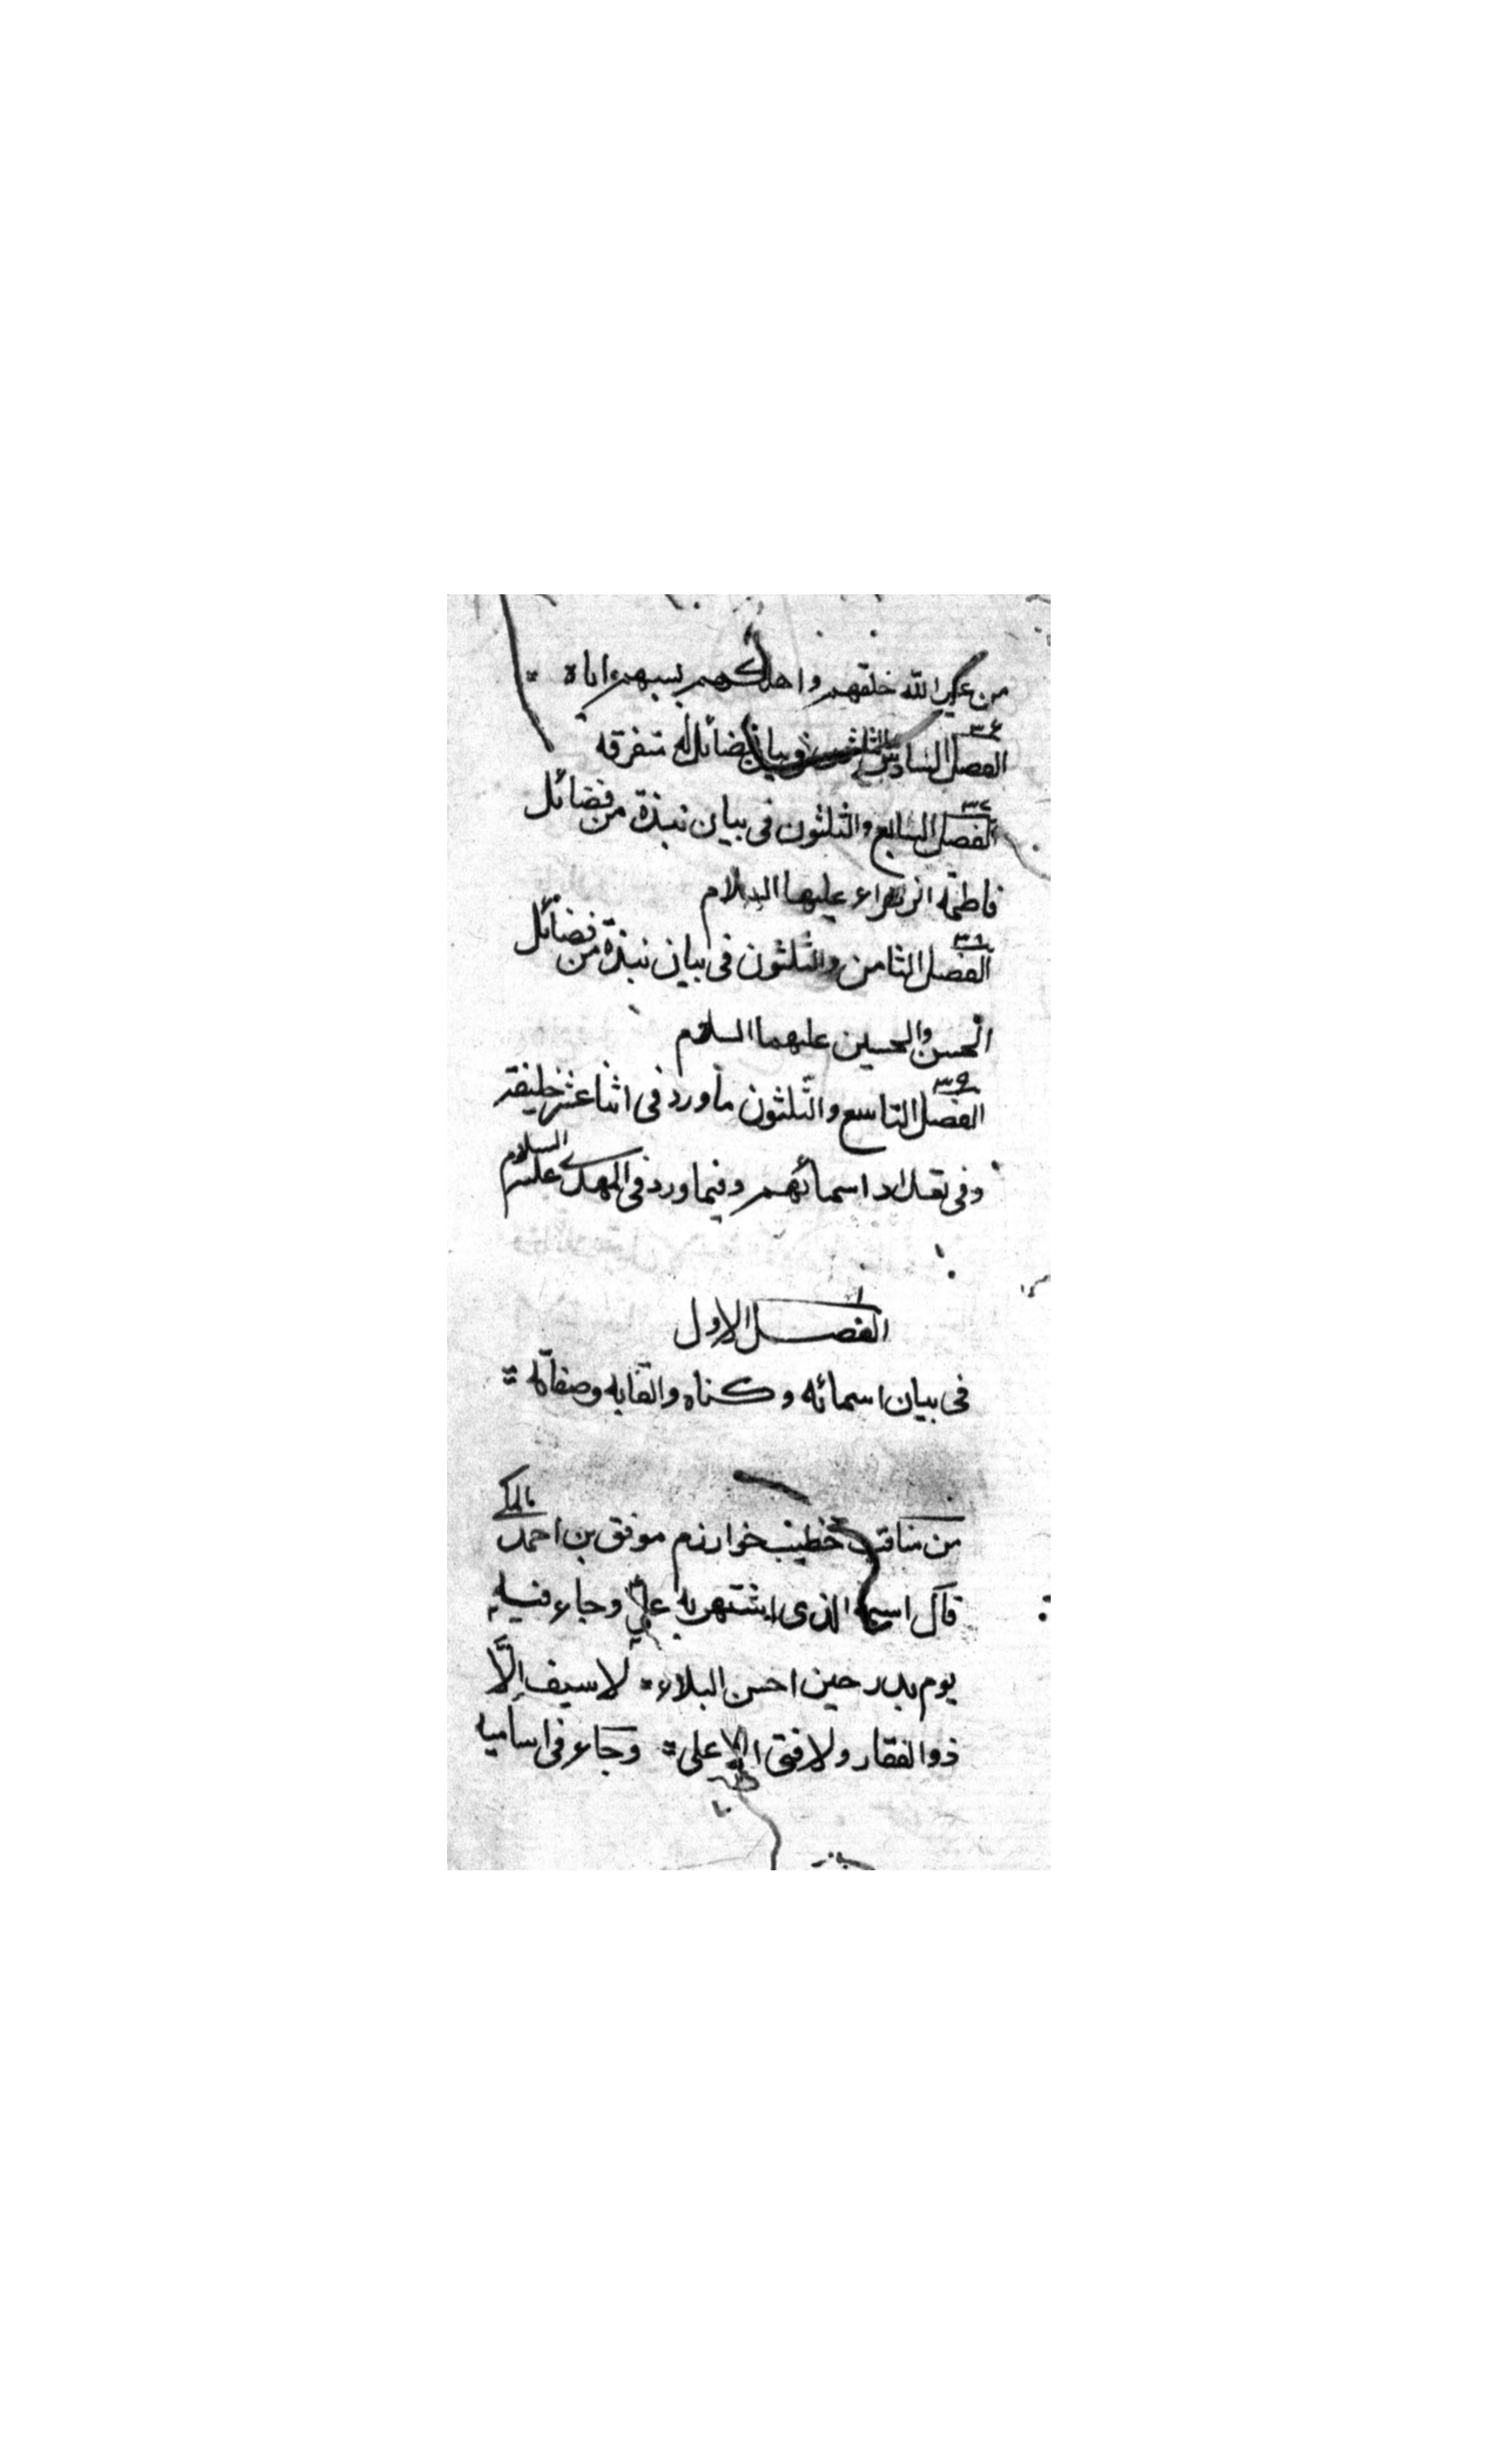 من غير الله خلقهم واهلكهم بسبهم اياه
٣٦
الفصل السادس والثلثون في بيان فضائل له متفرقه
٣٧
الفصل السابع والثلثون فى بيان نبذة من فضائل
فاطمة الزهراء عليها السلام
٣٨
الفصل الثامن والثلثون فى بيان نبذة من فضائل
الحسن والحسين عليهما السلام
٣٩
الفصل التاسع والثلثون ما ورد فى اثنا عشر خليفة
وفى تعداد اسمائهم وفيما ورد فى المهدى عليه السلام
الفصل الاول
فى بيان اسمائه وكناه والقابه وصفاته
من مناقب خطيب خوارزم موفق بن احمد المكي
قال اسمه الذى اشتهر به علي وجاء فيه
يوم بدر حين احسن البلاء لا سيف إلّا
ذو الفقار ولا فتى الا على وجاء فى اساميه